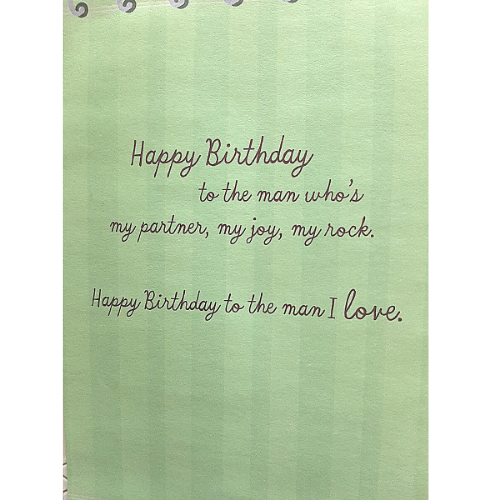 Happy Birthday
to the man who's
my partner, my joy, my rock.
Happy Birthday to the man I love.